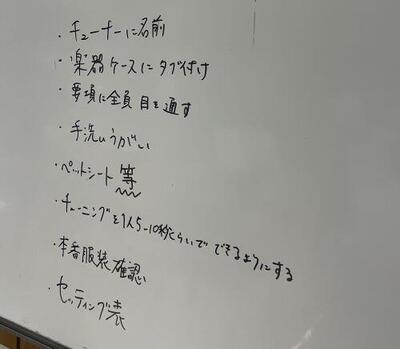 ・チューナーに名前
・楽器ケースにタグ付け
・要項に全員目を通す
・手洗いうがい
・ペットシート等
・チューニングを1人5-10秒くらいでできるようにする
・本番服装確認
・セッティング表